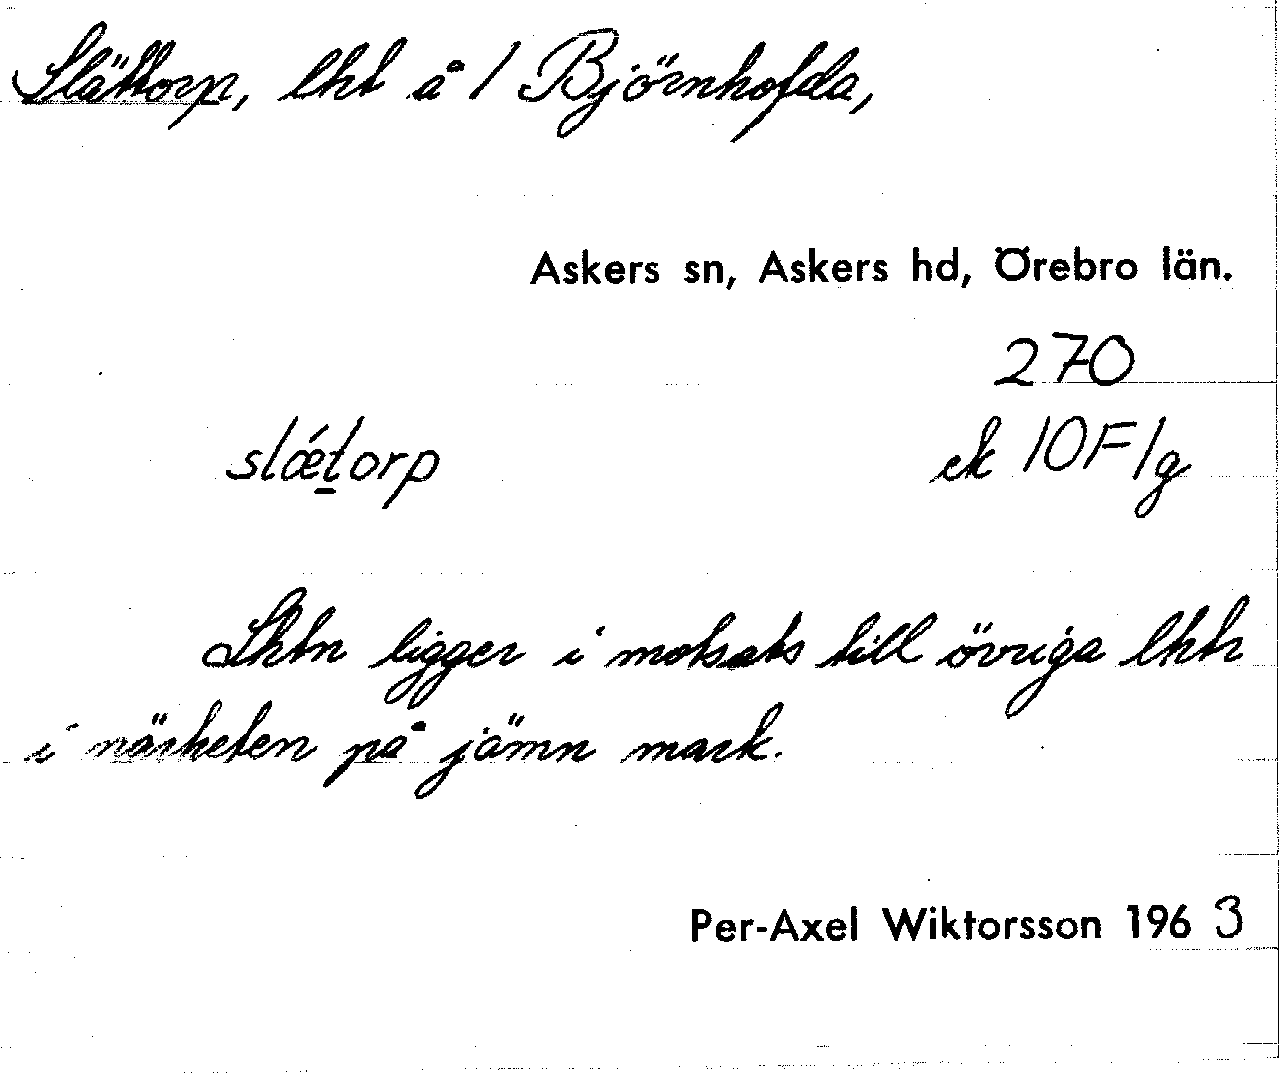 Slättorp, lht å 1 Björnhofda,
Askers sn, Askers hd, Örebro län.
270
slǽt̠orp
ek 10F1g
Lhtn ligger i motsats till övriga lhtr
i närheten på jämn mark.
Per-Axel Wiktorsson 1963